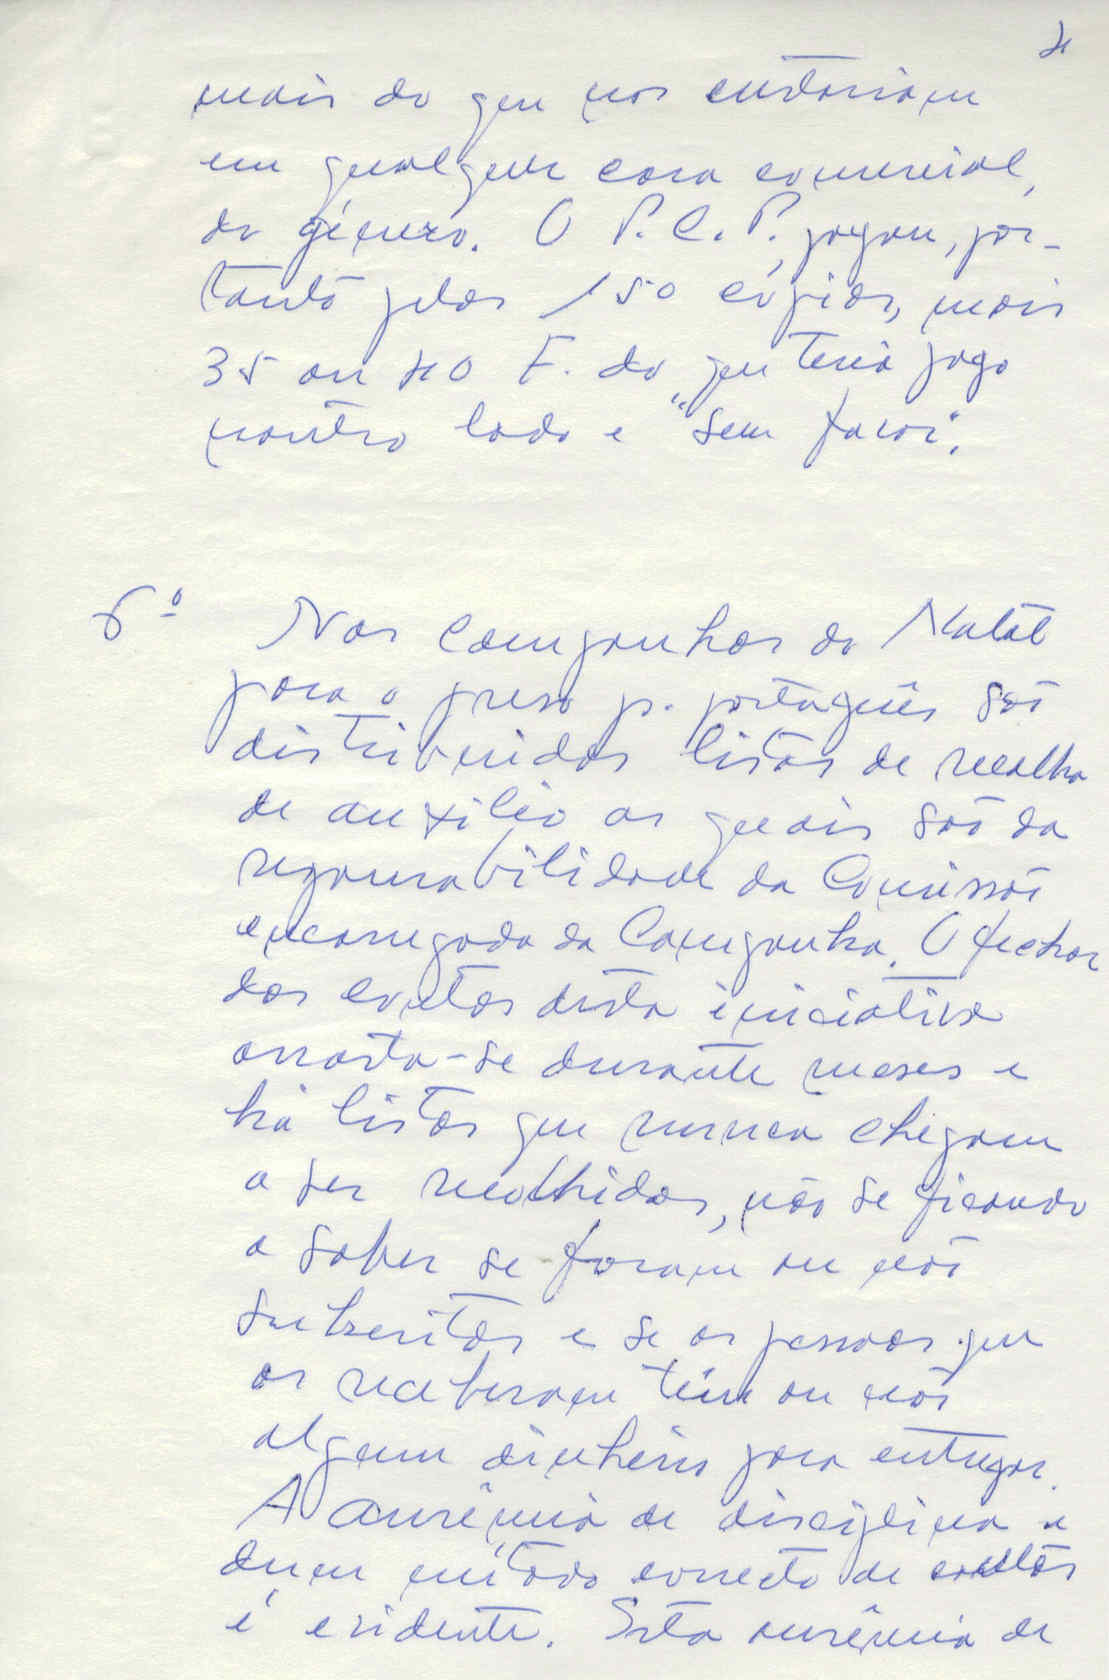 4
mais do que nos custariam
em qualquer casa comercial,
do género. O P.C.P., pagou, por-
tanto pelas 150 cópias, mais
35 ou 40 F. do que teria pago
noutro lado e "sem favor".
6º Nas Campanhas do Natal
para o preso p. português são
distribuidas listas de recolha
de auxílio as quais são da
responsabilidade da Comissão
encarregada da Campanha. O fechar
das contas desta iniciativa
arrasta-se durante meses e
há listas que nunca chegam
a ser recolhidas, não se ficando
a saber se foram ou não
subscritas e se as pessoas que
as receberam têm ou não
algum dinheiro para entregar.
A ausência de disciplina e
dum método correcto de contas
é evidente. Esta ausência de